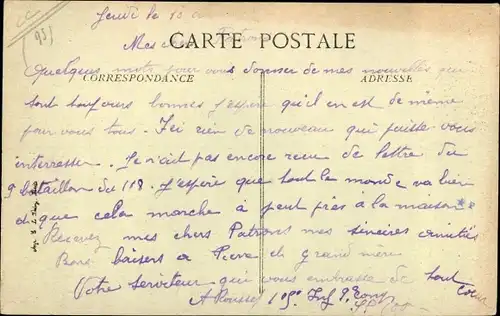 Jeudi le 15
Mes chers Patrons
CARTE POSTALE
Quelques mots pour vous donner de mes nouvelles qui
CORRESPONDANCE
ADRESSE
sont toujours bonnes j'espère qu'il en est de même
pour vous tous. Ici rien de nouveau qui puisse vous
interresser. Je n'ait pas encore reçu de lettre du
9 bataillon du 118. J'espère que tout le monde va bien
et que cela marche à peut près à la maison
Recevez mes chers Patrons mes sincères amitiés
Bons baisers a Pierre et grand mère
Votre serviteur qui vous embrasse de tout
Coeur
A Rousse